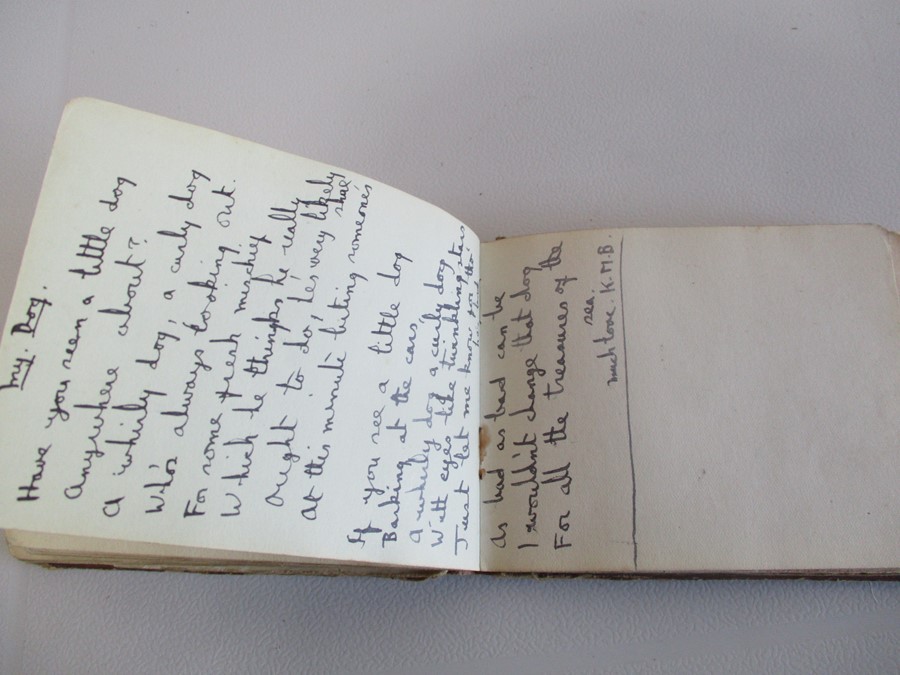 My. Dog.
Have you seen a little dog
Anywhere about?
A whirly dog, a curly dog
Who's always looking out.
For some fresh mischief
Which he thinks he really
Ought to do, he's very likely
At this minute biting someone's
shoe
If you see a little dog
Barking at the cars
A whirly dog a curly dog
With eyes like twinkling stars
Just let me know for tho'
he's
As bad as bad can be
I wouldn't change that dog
For all the treasures of the
sea.
much love. K.M.B.